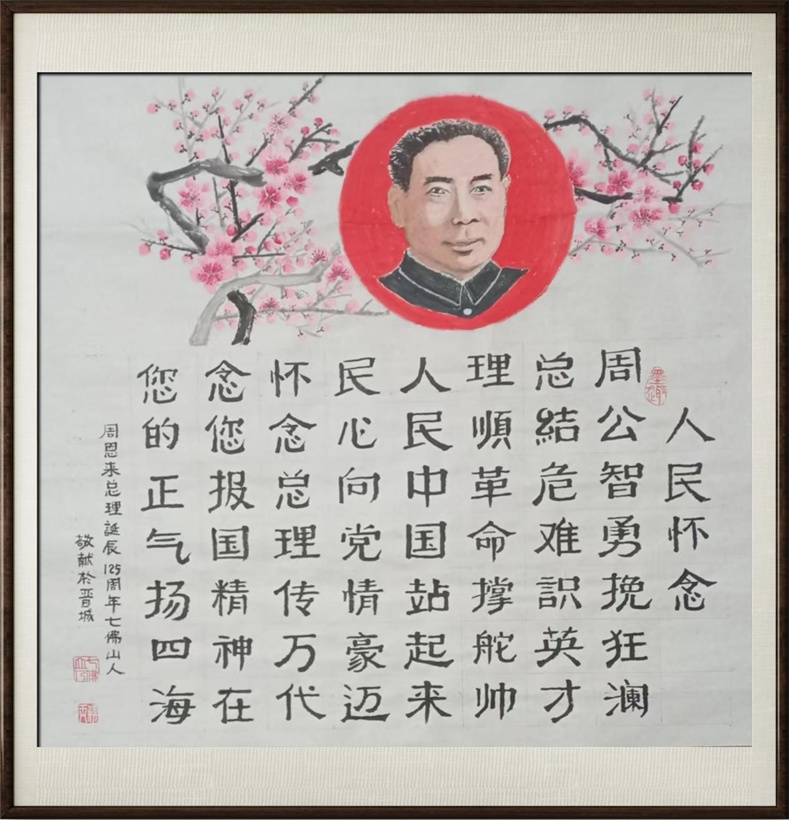 人民怀念
周公智勇挽狂澜
总結危难識英才
理順革命撑舵帅
人民中国站起来
民心向党情豪迈
怀念总理传万代
念您报国精神在
您的正气扬四海
周恩来总理誕辰125周年七佛山人
敬献於晋城